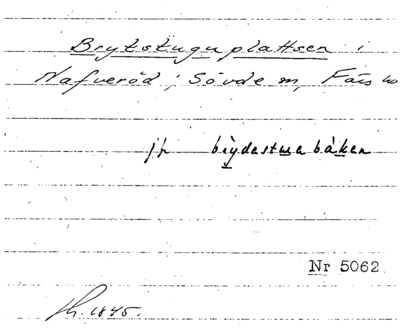 Brytstuguplattsen i
Nafveröd, Sövde sn, Färs hd
jfr brydestuabáken
Nr 5062
1845.